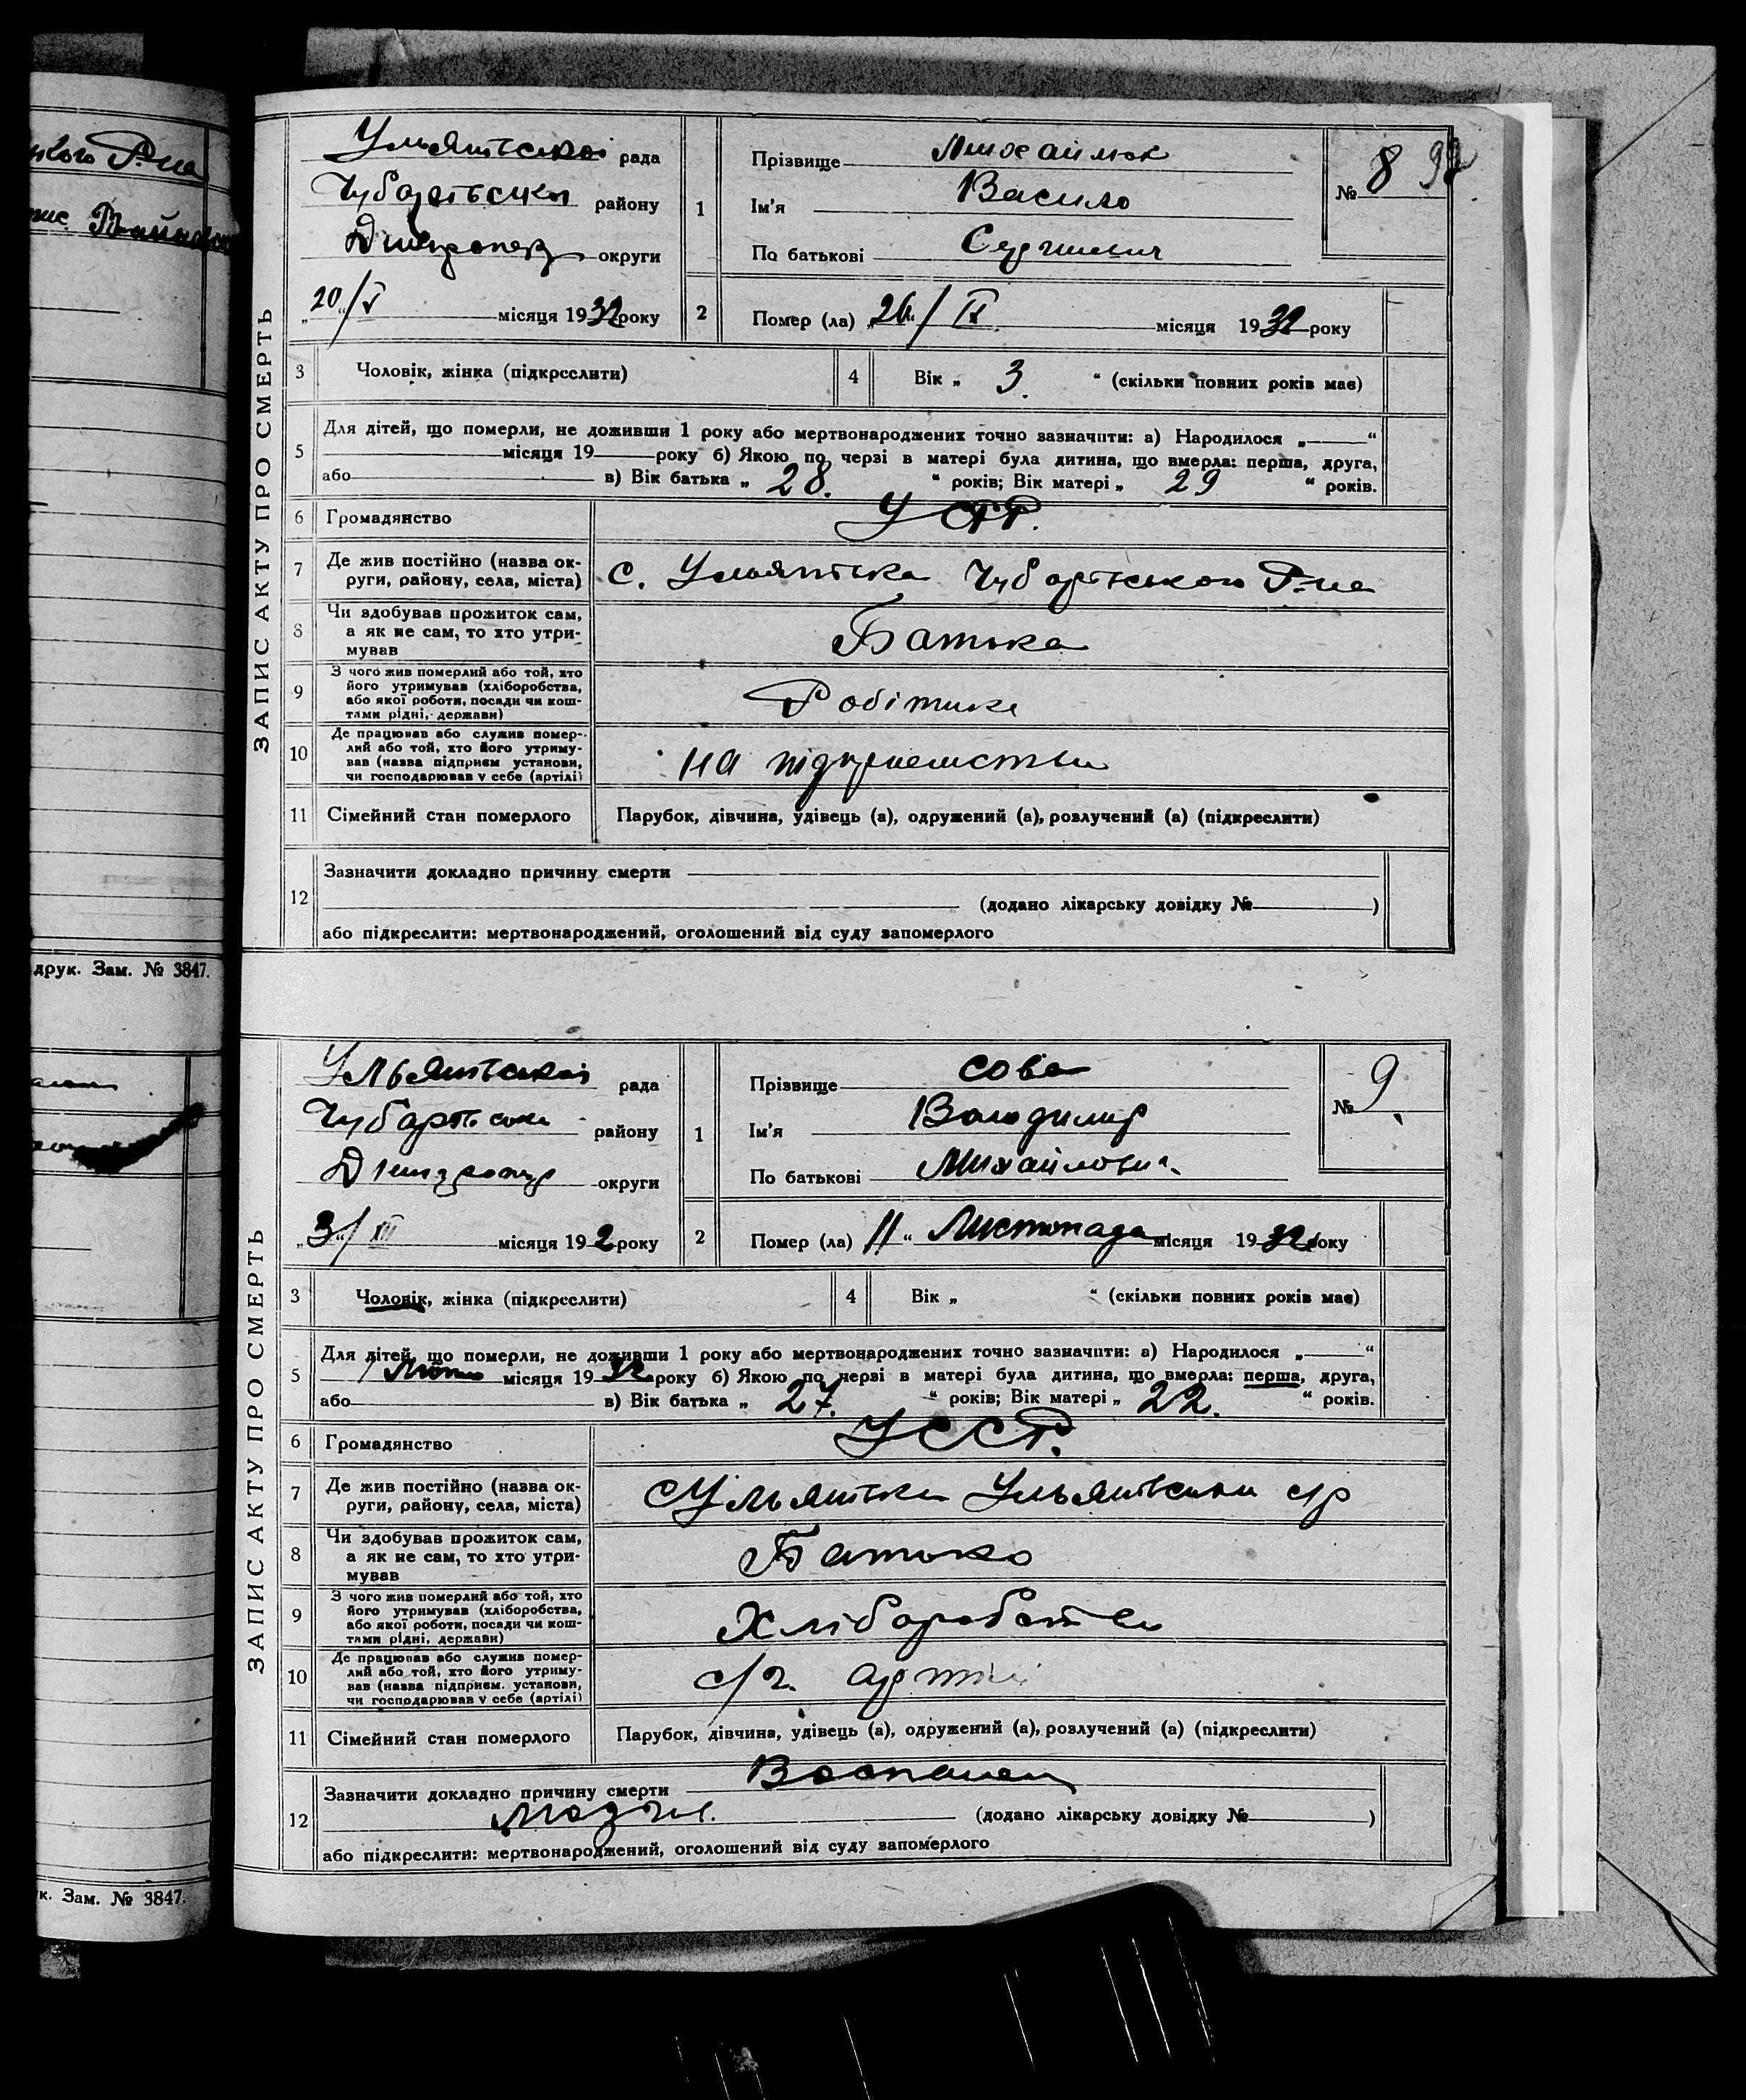 Р-на
друк. Зам. № 3847.
к. Зам. № 3847.
ЗАПИС АКТУ ПРО СМЕРТЬ
Ульянівської рада
Чубарівськ району
округи
„20“/V місяця 1932 року
1
Прізвище Михайлюк
Ім'я Василь
По батькові
№ 8
2
Помер (ла) „26“/ місяця 1932 року
3 Чоловік, жінка (підкреслити)
4 Вік „ 3. “ (скільки повних років має)
5
Для дітей, що померли, не доживши 1 року або мертвонароджених точно зазначити: а) Народилося „ “
місяця 19 року б) Якою по черзі в матері була дитина, що вмерла: перша, друга,
або в) Вік батька „ 28. “ років; Вік матері „ 29 “ років.
6 Громадянство УСРР.
7 Де жив постійно (назва ок-
руги, району, села, міста) с. Ульянівка Чубарівського Р-на
8 Чи здобував прожиток сам,
а як не сам, то хто утри-
мував Батька
9 З чого жив померлий або той, хто
його утримував (хліборобства,
або якої роботи, посади чи кош-
тами рідні, держави)
10 Де працював або служив помер-
лий або той, хто його утриму-
вав (назва підприєм установи,
чи господарював у себе (артілі)
на
11 Сімейний стан померлого Парубок, дівчина, удівець (а), одружений (а), розлучений (а) (підкреслити)
12
Зазначити докладно причину смерти
(додано лікарську довідку № )
або підкреслити: мертвонароджений, оголошений від суду запомерлого
ЗАПИС АКТУ ПРО СМЕРТЬ
Ульянівської рада
Чубарівськ району
округи
„3“/XII місяця 192 року
1
Прізвище Сова
Ім'я Володимир
По батькові Михайлович
№ 9.
2
Помер (ла) 11 “ Листопада місяця 1932 року
3 Чоловік, жінка (підкреслити)
4 Вік „ “ (скільки повних років має)
5
Для дітей, що померли, не доживши 1 року або мертвонароджених точно зазначити: а) Народилося „ “
місяця 1932 року б) Якою по черзі в матері була дитина, що вмерла: перша, друга,
або в) Вік батька „ 27. “ років; Вік матері „ 22. “ років.
6 Громадянство УССР.
7 Де жив постійно (назва ок-
руги, району, села, міста) с Ульянівка Ульянівської с/р
8 Чи здобував прожиток сам,
а як не сам, то хто утри-
мував Батько
9 З чого жив померлий або той, хто
його утримував (хліборобства,
або якої роботи, посади чи кош-
тами рідні, держави)
Хліборобства
10 Де працював або служив помер-
лий або той, хто його утриму-
вав (назва підприєм. установи,
чи господарював у себе (артілі)
с/г. артілі
11 Сімейний стан померлого Парубок, дівчина, удівець (а), одружений (а), розлучений (а) (підкреслити)
12
Зазначити докладно причину смерти
(додано лікарську довідку № )
або підкреслити: мертвонароджений, оголошений від суду запомерлого